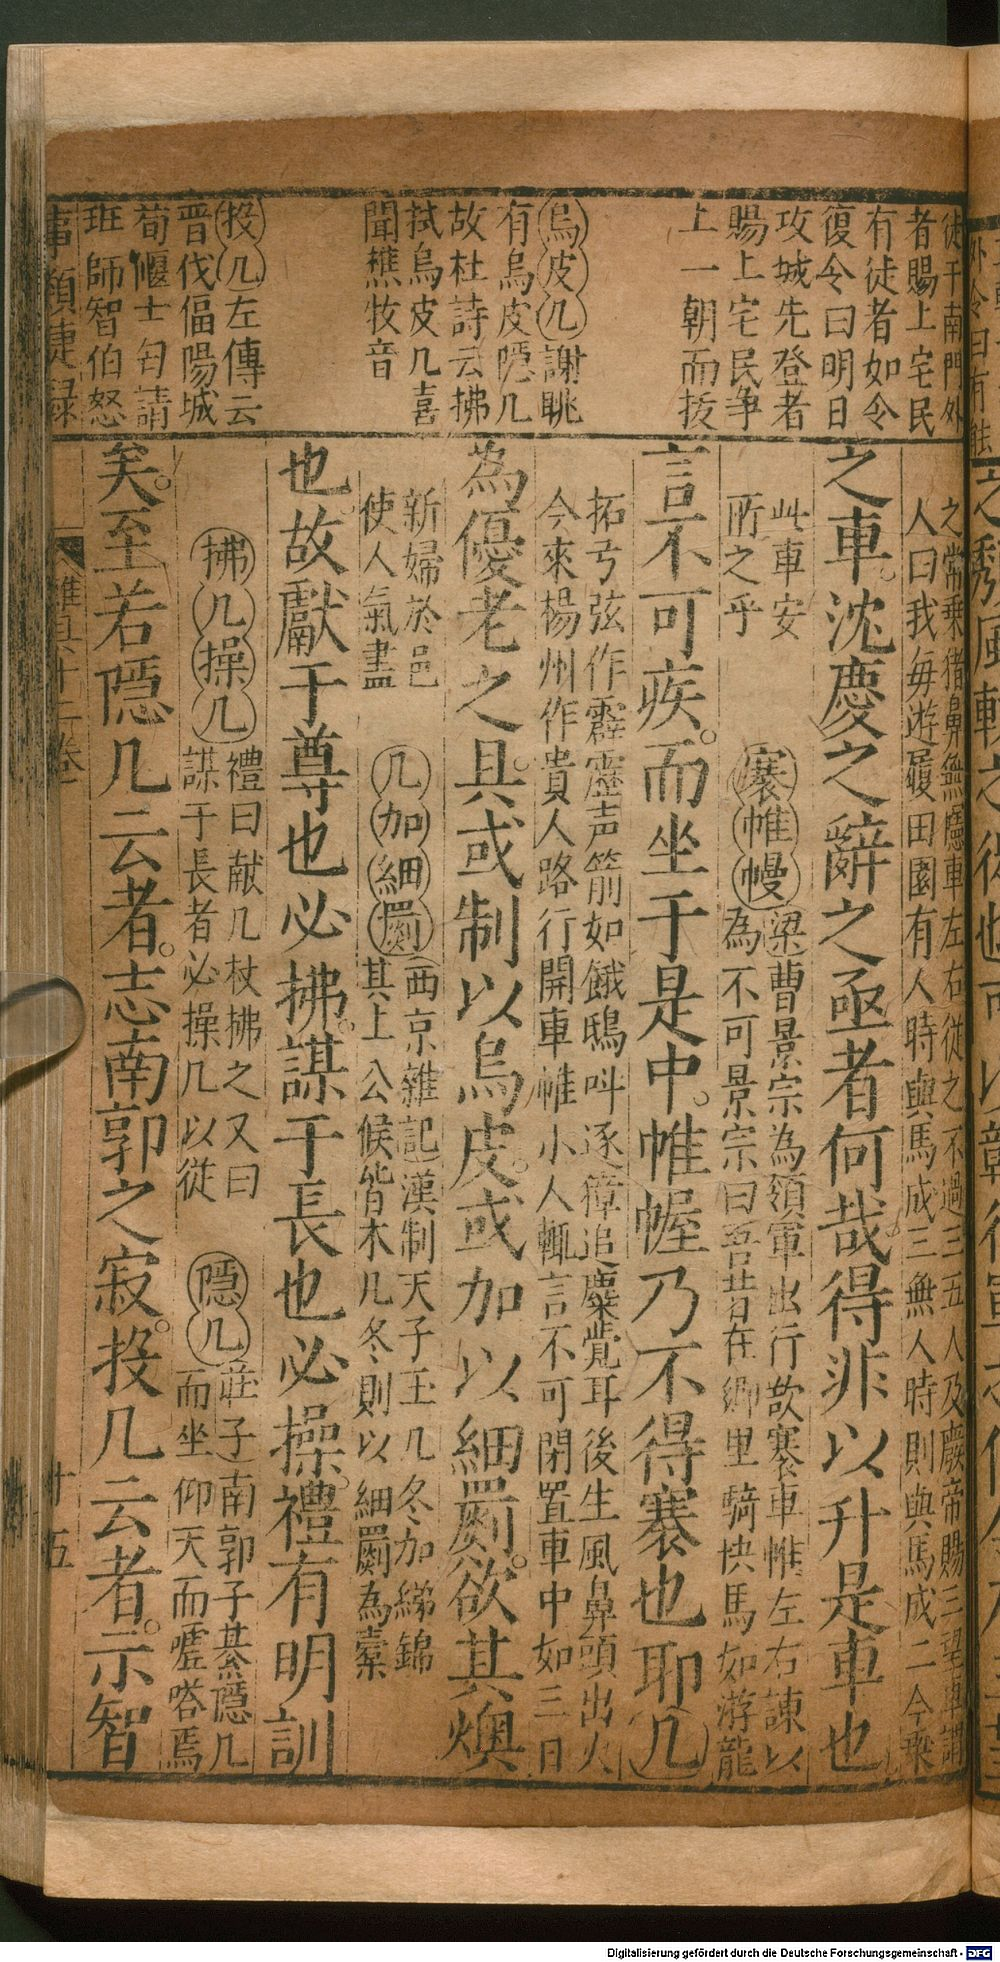 徒于南門外
者賜上宅民
有徒者如令
復令曰明日
攻城先登者
賜上宅民爭
上一朝而拔
烏皮几謝眺
有烏皮隱几
故杜詩云拂
拭烏皮几喜
聞樵牧音
投几左傳云
晋伐偪陽城
荀偃士匄請
班師智伯怒
之常乗猪鼻無隱車左右從之不過三五人及廢帝賜三望車謂
人曰我每遊履田園有人時與馬成三無人時則與馬成二今乗
之車沈慶之辭之亟者何哉得非以升是車也
此車安
所之乎
褰帷幔
梁曹景宗為領軍出行欲褰車帷左右諫以
為不可景宗曰吾昔在鄉里騎快馬如游龍
言不可疾而坐于是中帷幄乃不得褰也耶几
拓弓弦作霹靂声箭如餓鴟呌逐獐追麋覺耳後生風鼻頭出火
今來楊州作貴人路行開車帷小人輒言不可閉置車中如三日
為優老之具或制以烏皮或加以細罽欲其燠
新婦於邑
使人氣盡
几加細罽
西京雜記漢制天子玉几冬加綈錦
其上公候皆木几冬則以細罽為橐
也故獻于尊也必拂謀于長也必操禮有明訓
拂几操几
禮曰献几杖拂之又曰
謀于長者必操几以從
隱几
莊子南郭子綦隱几
而坐仰天而嘘嗒焉
矣至若隱几云者志南郭之寂投几云者示智
事類捷録
十五
Digitalisierung gefördert durch die Deutsche Forschungsgemeinschaft - DFG